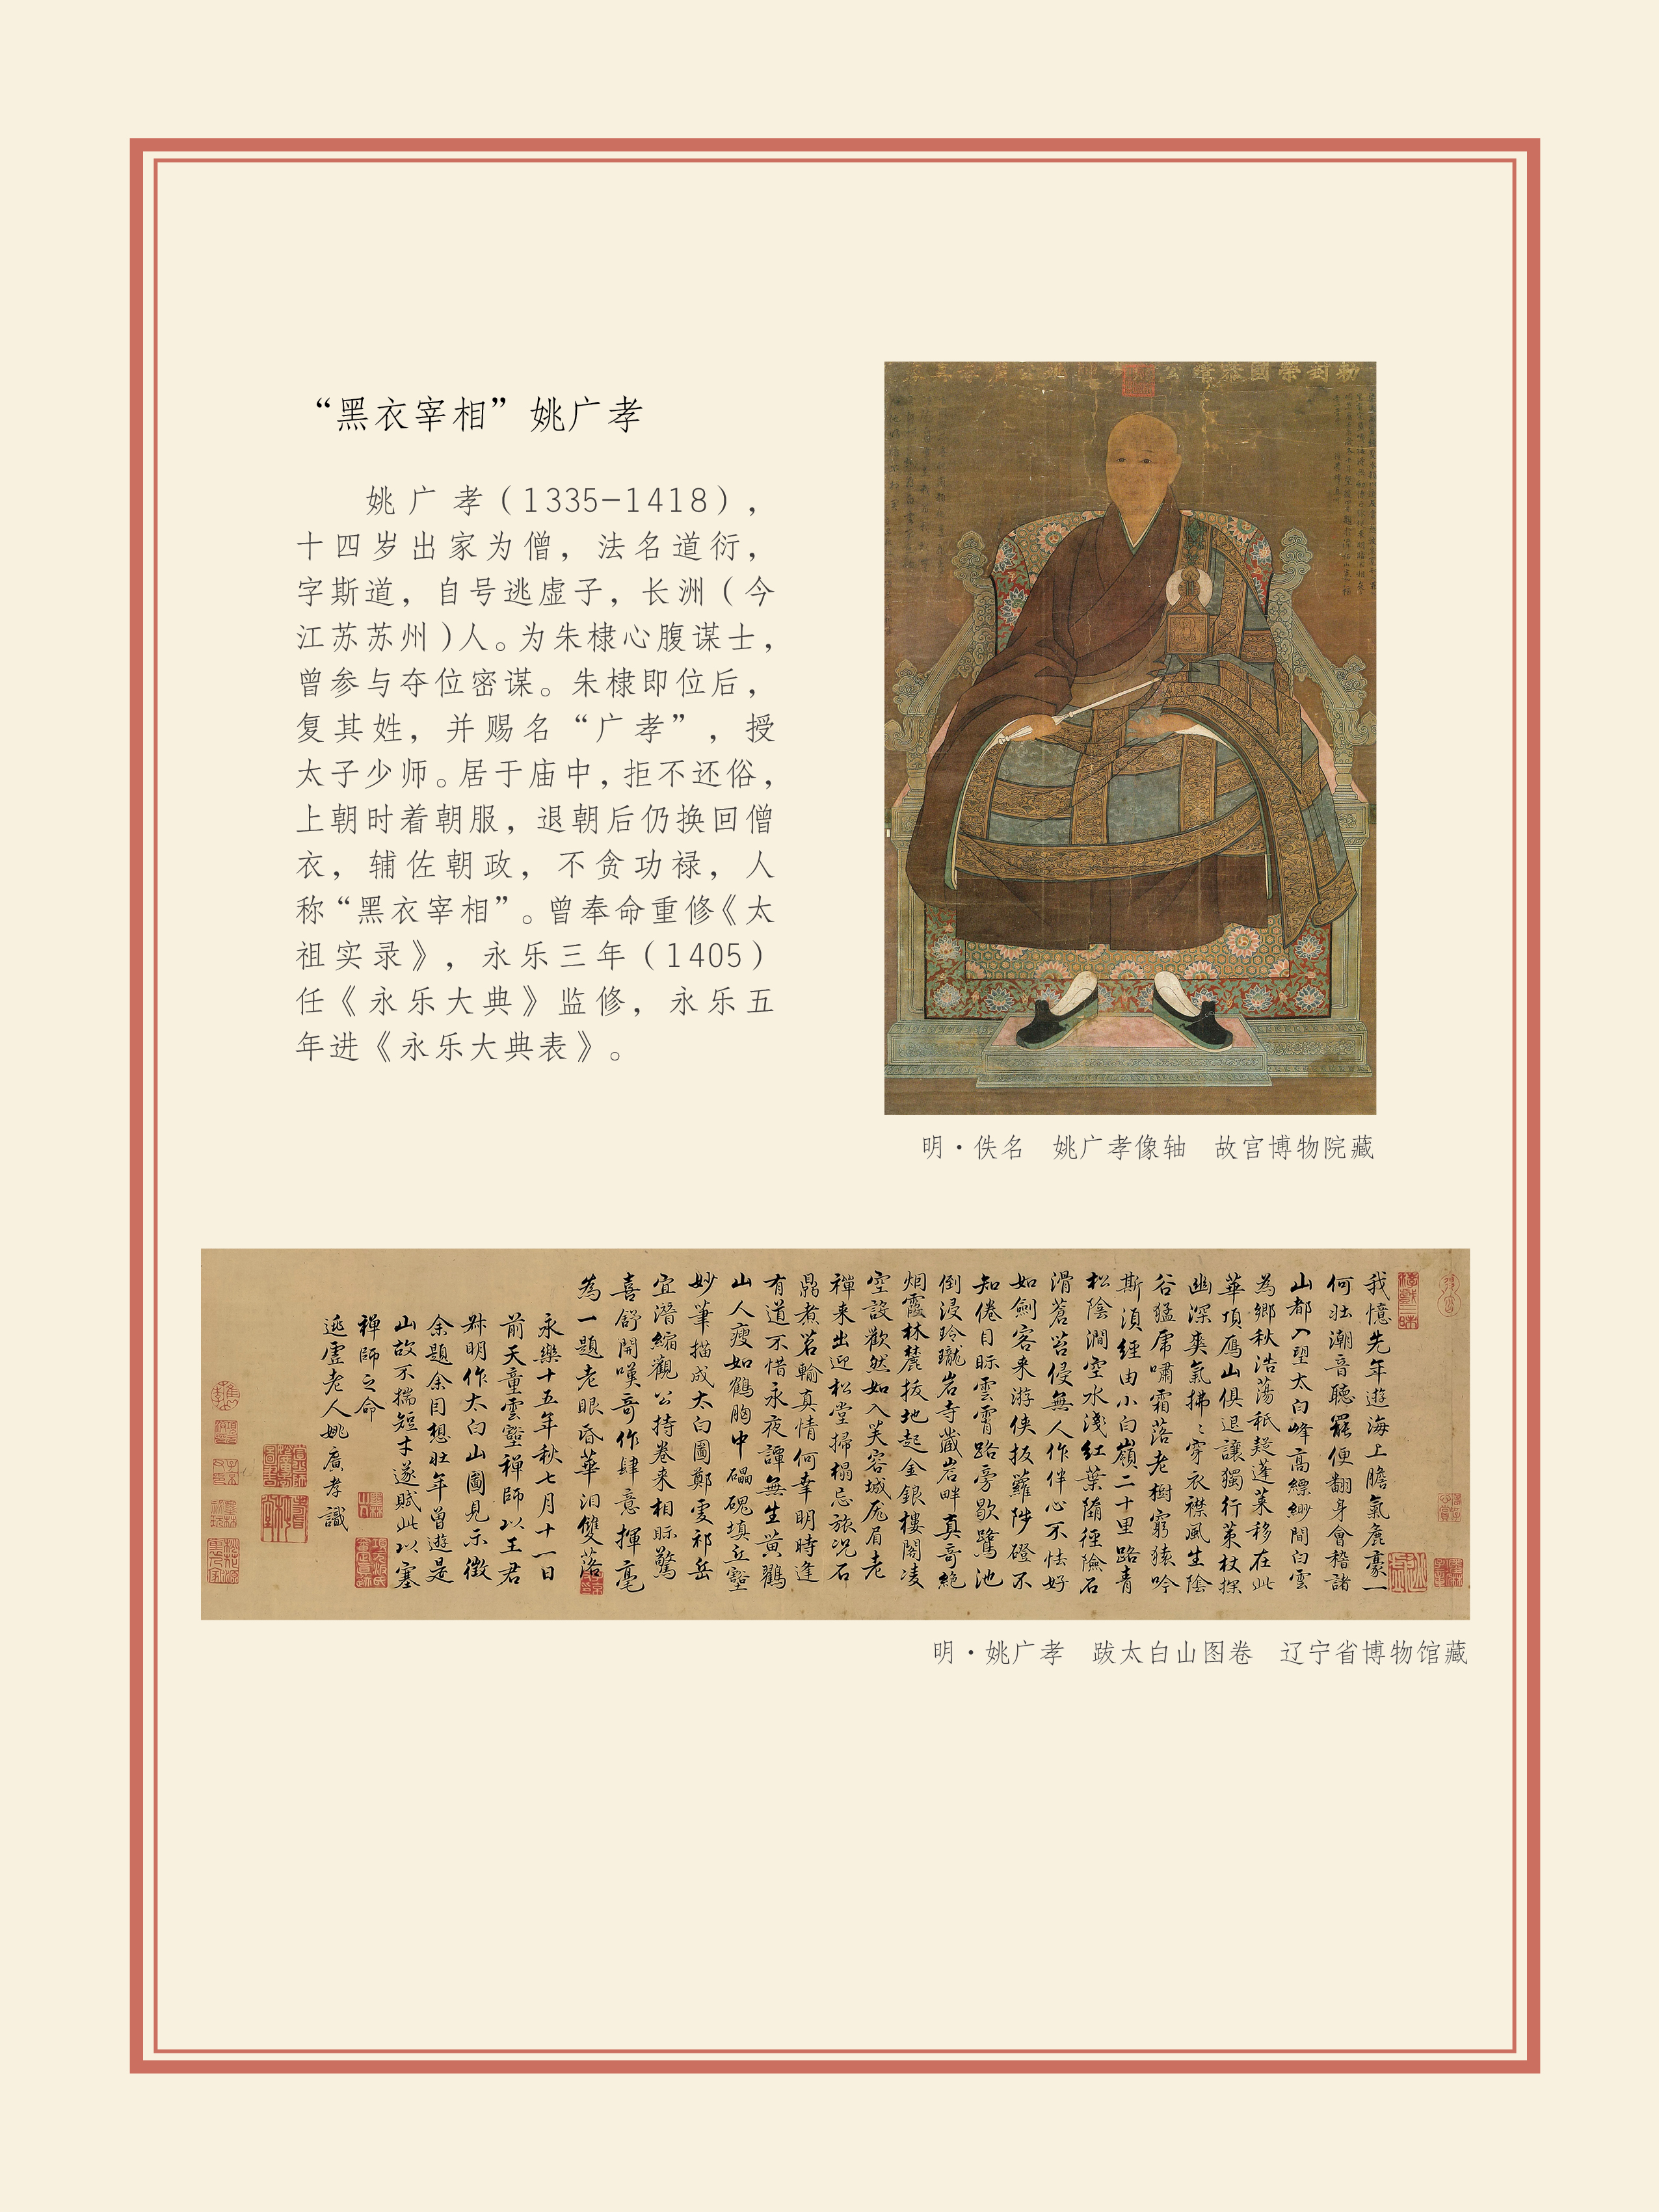 “黑衣宰相”姚广孝
姚广孝（1335-1418），
十四岁出家为僧，法名道衍，
字斯道，自号逃虚子，长洲（今
江苏苏州）人。为朱棣心腹谋士，
曾参与夺位密谋。朱棣即位后，
复其姓，并赐名“广孝”，授
太子少师。居于庙中，拒不还俗，
上朝时着朝服，退朝后仍换回僧
衣，辅佐朝政，不贪功禄，人
称“黑衣宰相”。曾奉命重修《太
祖实录》，永乐三年（1405）
任《永乐大典》监修，永乐五
年进《永乐大典表》。
明·佚名 姚广孝像轴 故宫博物院藏
我憶先年遊海上膽氣麁豪一
何壯潮音聽罷便翻身會稽諸
山都入望太白峰高縹緲間白雲
為鄉秋浩蕩秖疑蓬萊移在此
華頂鴈山俱退讓獨行策杖探
幽深爽氣拂〻穿衣襟風生陰
谷猛虎嘯霜落老樹窮猿吟
斯湏經由小白嶺二十里路青
松陰澗空水淺紅葉墮徑險石
滑蒼苔侵無人作伴心不怯好
如劍客来游俠扳蘿陟磴不
知倦目眎雲霄路旁歇鷺池
倒浸玲瓏岩寺藏岩畔真奇絕
烟霞林麓拔地起金銀樓閣凌
空設歡然如入芙容城厖眉老
禪来出迎松堂掃榻忘旅况石
鼎煮茗輸真情何幸明時逢
有道不惜永夜譚無生黄鸛
山人瘦如鶴胸中礧磈填丘壑
妙筆描成太白圖鄭虔祁岳
宜潛縮觀公持卷来相眎驚
喜舒開嘆奇作肆意揮毫
為一題老眼昏華泪雙落
永樂十五年秋七月十一日
前天童雲壑禪師以王君
叔明作太白山圖見示徵
余題余因想壯年曾遊是
山故不揣短才遂賦此以塞
禅師之命
逃虛老人姚廣孝識
明·姚广孝 跋太白山图卷 辽宁省博物馆藏